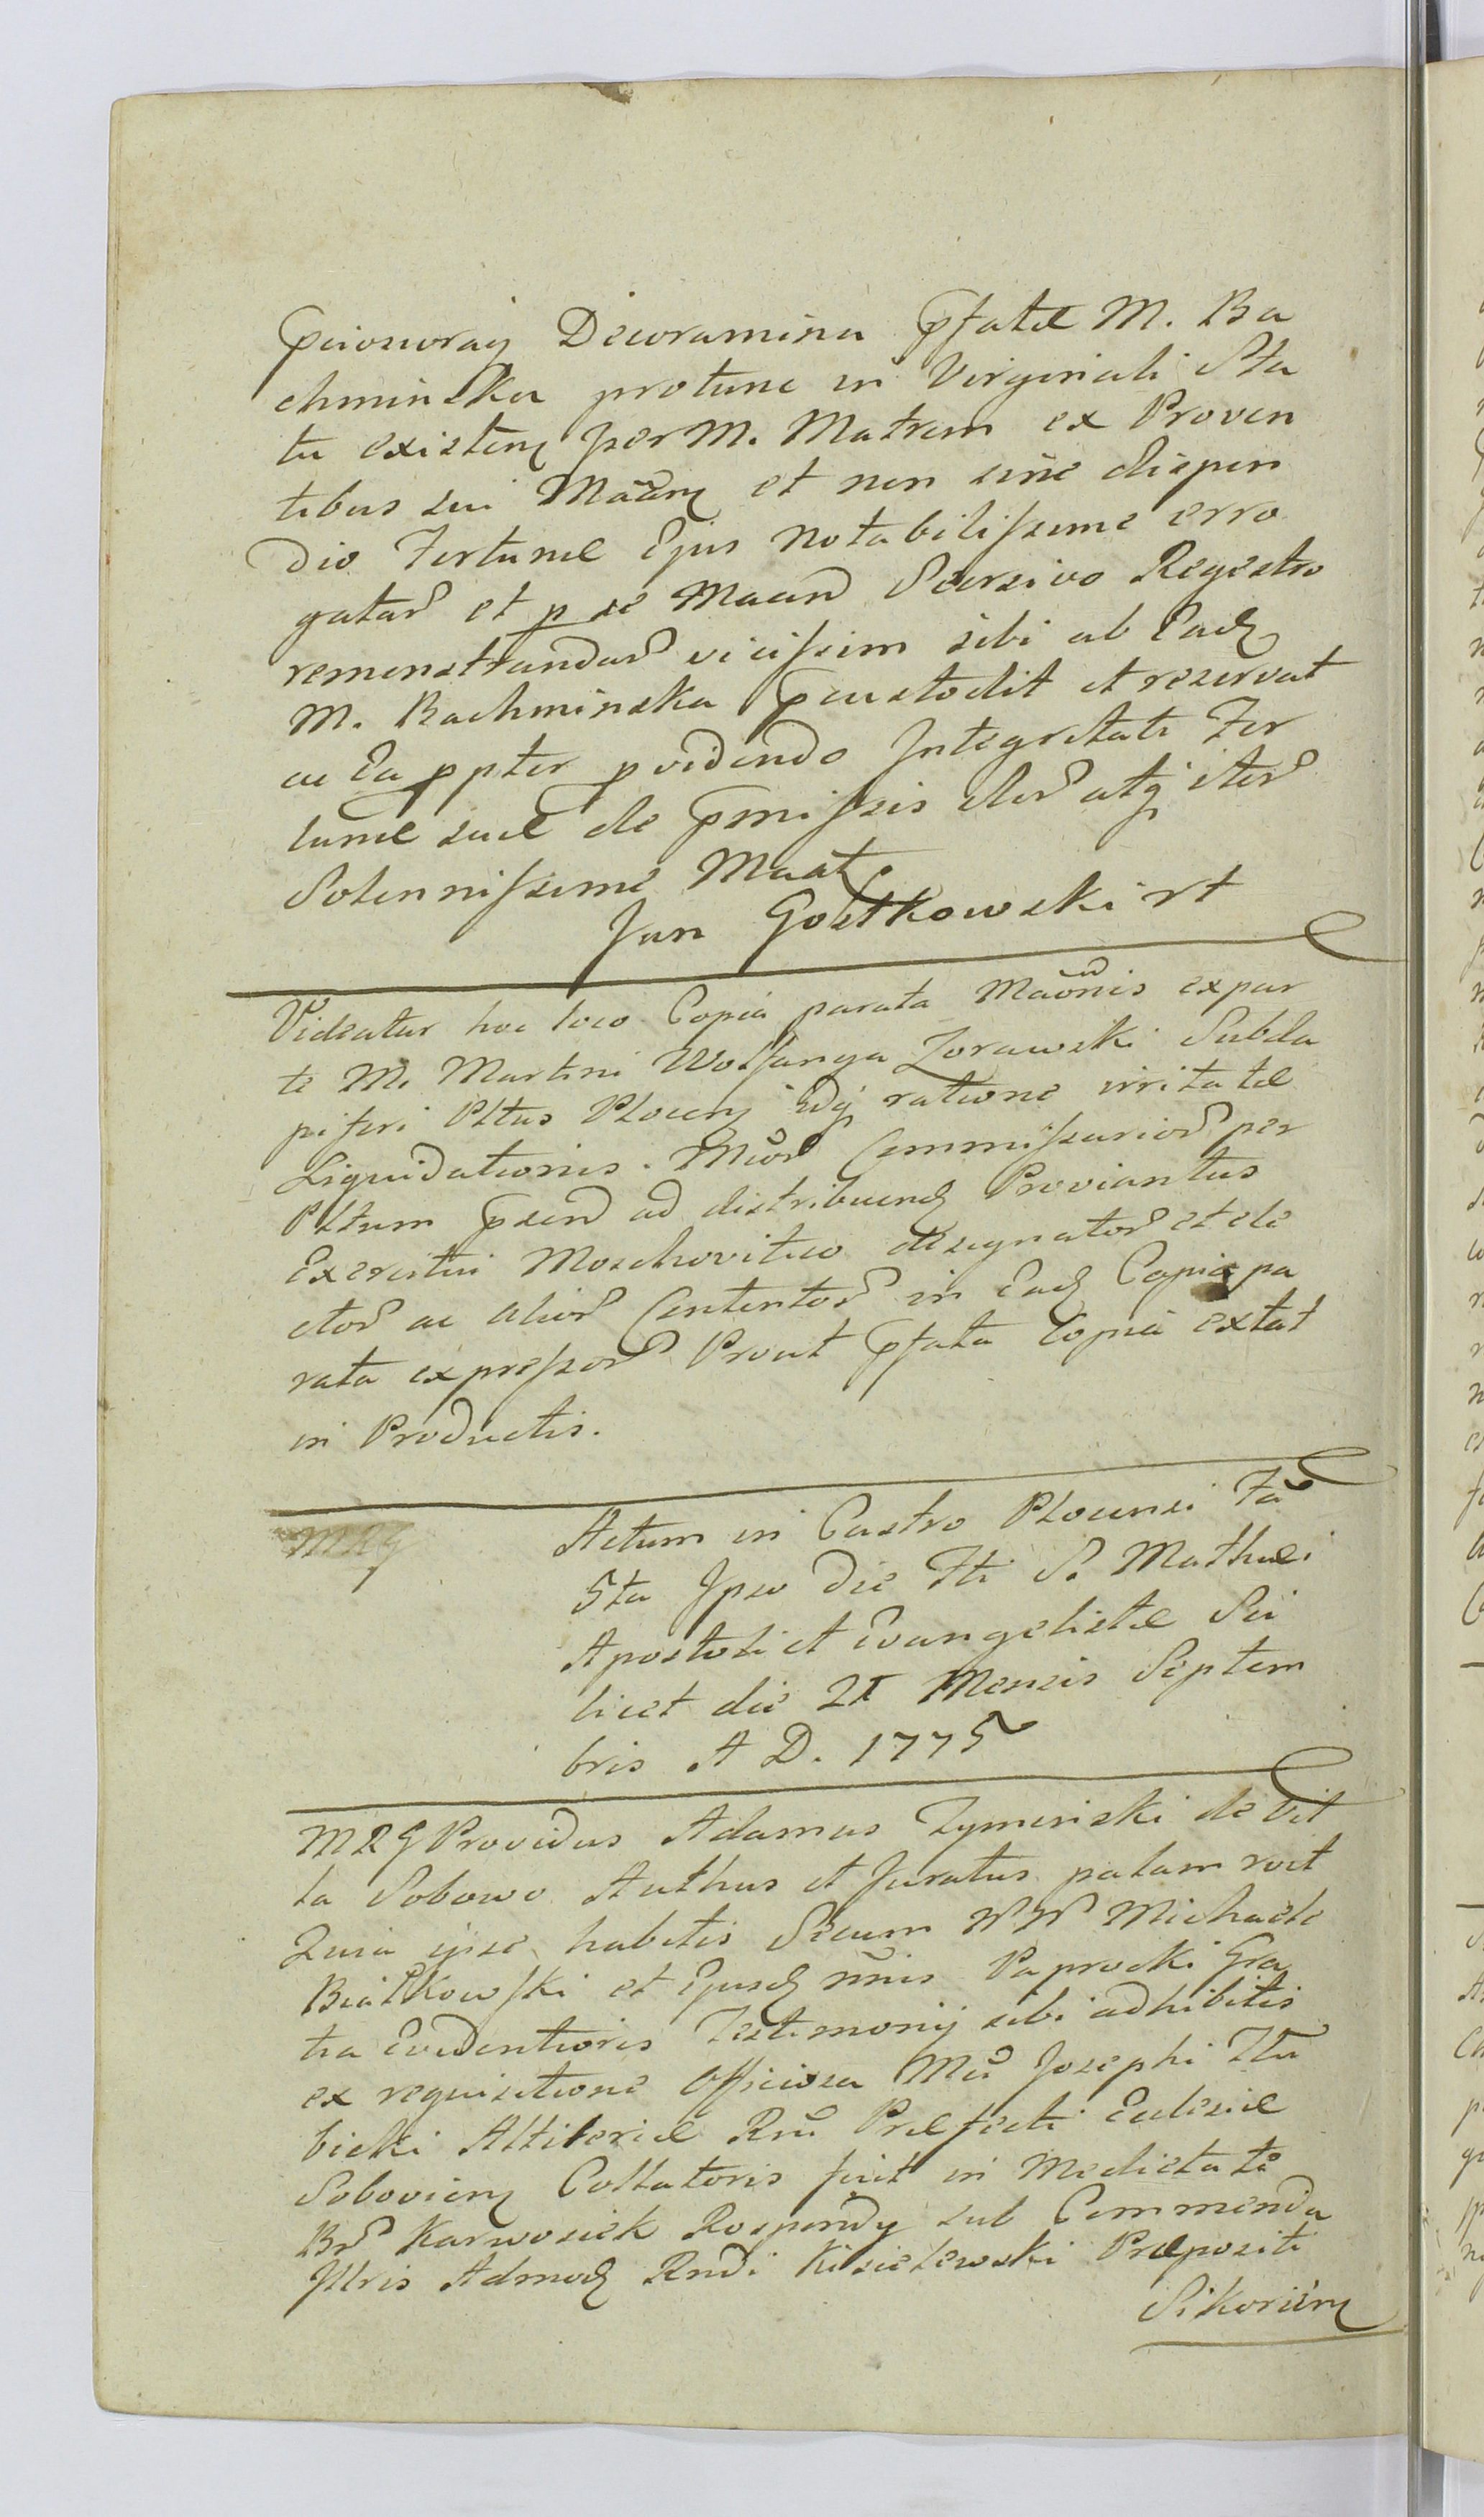 Decoramina Pfatæ M. Ba
chminska protunc in Virginali Sta
tu existen per M. Matrem ex Proven
tibus sui Maan et non sine dispen
dio Fortunæ Ejus Notabilissime erro
gatar et p se Maan Seorsivo Regestro
remonstrandar vicissim sibi ab Ead
M. Bachminska Pcustodit et reservat
ac Ea ppter pvidendo Integritati For
tunæ suæ de Pmissis iter atq iter
Solennissime Maat
Jan Gostkowski rt
Videatur hoc loco Copia parata Maonis expar
te M. Martini Wolfanga Zorawski Subda
piferi Pltus Plocen idq ratione irritatæ
Liquidationis. Mcor Commissarior per
Pltum Psen ad distribuend Proviantus
Exercitui Moschovitico designator et ele
ctor ac alior Contentor in Ead Copia pa
rata expressor Prout Pfata Copia extat
in Productis.
MRG
Actum in Castro Plocensi Fa
5ta Ipso die Fti S. Mathæi
Apostoli et Evangelistæ Sci
licet die 21 Mensis Septem
bris A D. 1775
MRG Providus Adamus Zyminski de Vil
la Sobowo Authus et Juratus palam rvit
Quia ipse habitis Secum NN Michaele
Białkowski et Ejusd nnis Paprocki Gra
tia Evidentioris Testimonij sibi adhibitis
ex requisitione Officiosa Mci Josephi
bicki Altileriæ Rni Præfecti Eclesiæ
Sobovien Collatoris fuit in Medietate
Bnr Karwosiek Rospondy sub Commenda
Illris Admod Rndi Kisielewski Præpositi
Sikorien